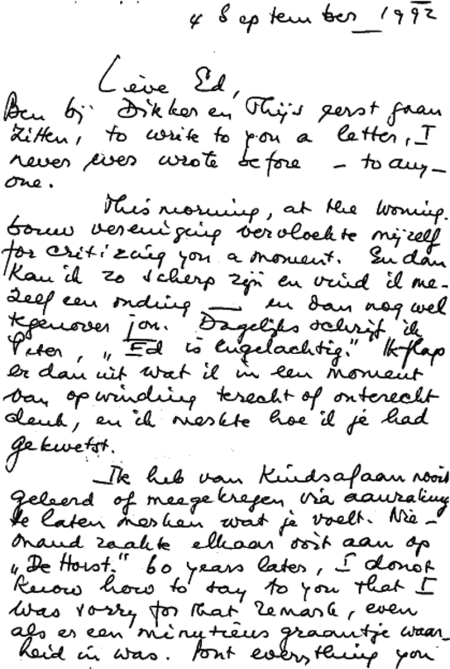 4 September 1992
Lieve Ed,
Ben bij Dikker en Thijs eerst gaan
zitten, to write to you a letter, I
never ever wrote before — to any-
one.
This morning, at the woning-
bouw vereniging vervloekte mijzelf
for critizing you a moment. En dan
kan ik zo scherp zijn en vind ik me-
zelf een onding — en dan nog wel
tegenover jou. Dagelijks schrijf ik
Peter, „Ed is engelachtig." Ik flap
er dan uit wat ik in een moment
van opwinding terecht of onterecht
denk, en ik merkte hoe ik je had
gekwetst.
Ik heb van kindsafaan nooit
geleerd of meegekregen via aanraking
te laten merken wat je voelt. Nie-
mand raakte elkaar ooit aan op
„De Horst." 60 years later, I donot
know how to say to you that I
was sorry for that remark, even
als er een minutieus graantje waar-
heid in was. everything you